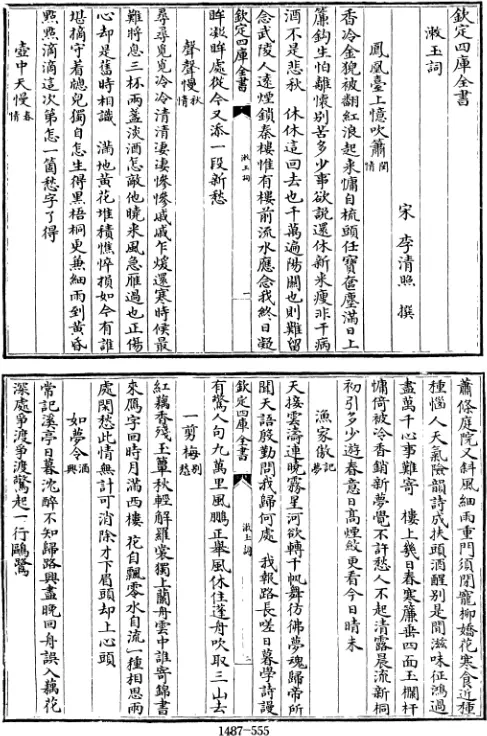 欽定四庫全書
漱玉詞
宋　李清照　撰
鳳凰臺上憶吹簫閨情
香冷金猊被翻紅浪起來慵自梳頭任寶奩塵滿日上
簾鈎生怕離懷別苦多少事欲說還休新来瘦非干病
酒不是悲秋　休休這回去也千萬遍陽關也則難留
念武陵人遠煙鎖秦樓惟有樓前流水應念我終日凝
欽定四庫全書
漱玉詞
二
眸凝眸處從今又添一段新愁
聲聲慢秋情
尋尋覓覓冷冷清清凄凄慘慘戚戚乍煖還寒時候最
難將息三杯兩盞淡酒怎敵他曉来風急雁過也正傷
心却是舊時相識　滿地黃花堆積憔悴損如今有誰
堪摘守着牕兒獨自怎生得黑梧桐更兼細雨到黃昏
點點滴滴這次第怎一箇愁字了得
壺中天慢春情
蕭條庭院又斜風細雨重門須閉寵柳嬌花寒食近種
種惱人天氣險韻詩成扶頭酒醒別是閒滋味征鴻過
盡萬千心事難寄　樓上幾日春寒簾垂四面玉欄杆
慵倚被冷香銷新夢覺不許愁人不起清露晨流新桐
初引多少遊春意日高煙斂更看今日晴未
漁家傲記夢
天接雲濤連曉霧星河欲轉千帆舞彷彿夢魂歸帝所
聞天語殷勤問我歸何處　我報路長嗟日暮學詩謾
欽定四庫全書
漱玉詞
三
有驚人句九萬里風鵬正舉風休住蓬舟吹取三山去
一剪梅別愁
紅藕香殘玉簟秋輕解羅裳獨上蘭舟雲中誰寄錦書
來鴈字回時月滿西樓　花自飄零水自流一種相思兩
處閒愁此情無計可消除才下眉頭却上心頭
如夢令酒興
常記溪亭日暮沈醉不知歸路興盡晚回舟誤入藕花
深處爭渡爭渡驚起一行鷗鷺
1487-555